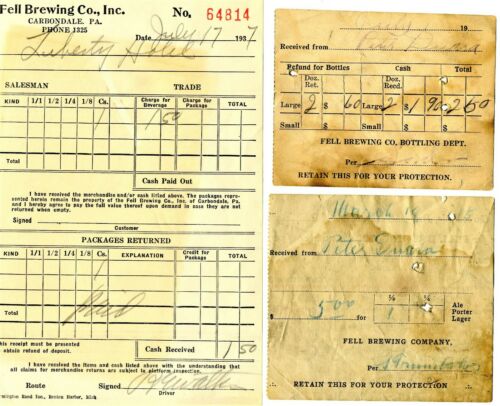 Fell Brewing Co., Inc.
CARBONDALE, PA.
PHONE 1325
No. 64814
Date July 17 1937
Liberty Hotel
SALESMAN TRADE
KIND 1/1 1/2 1/4 1/8 Cs. Charge for Beverage Charge for Package TOTAL
1 1 50
Total
Cash Paid Out
I have received the merchandise and/or cash listed above. The packages
represented herein remain the property of the Fell Brewing Co., Inc. of Carbondale, Pa.
and I hereby agree to pay the full value thereof upon demand in case they are not
returned when empty.
Signed
Customer
PACKAGES RETURNED
KIND 1/1 1/2 1/4 1/8 Cs. EXPLANATION Credit for Package TOTAL
1
Paid
Total
this receipt must be presented
obtain refund of deposit.
Cash Received 1 50
I have received the items and cash listed with the understanding that
all claims for merchandise returns are subject to platform inspection.
Route Signed
Driver
Remington Rand Inc., Benton Harbor, Mich
19
Received from
Refund for Bottles Cash
Doz. Ret. Doz. Recd. TOTAL
Large 2 $ 60 Large 2 $ 1 90 2 50
Small Small
FELL BREWING CO. BOTTLING DEPT.
Per
RETAIN THIS FOR YOUR PROTECTION.
March 19
Received from Peter
$ 5 00 for 1
Ale
Porter
Lager
FELL BREWING COMPANY,
Per
RETAIN THIS FOR YOUR PROTECTION